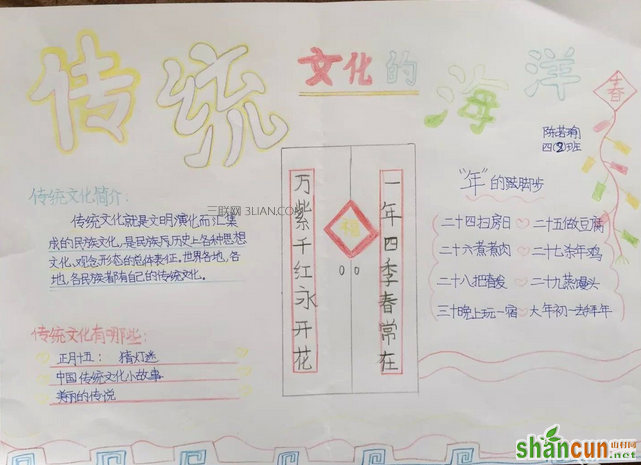 传统文化的海洋
春
陈若瑜
四(2)班
传统文化简介:
传统文化就是文明演化而汇集
成的民族文化,是民族历史上各种思想
文化、观念形态的总体表征。世界各地,各
地,各民族都有自己的传统文化。
三联网 3LIAN.COM
传统文化有哪些:
正月十五: 猜灯迷
中国传统文化小故事
美丽的传说
万紫千红永开花
福
一年四季春常在
"年"的
脚步
二十四扫房日 二十五做豆腐
二十六煮煮肉 二十七杀年鸡
二十八把面发 二十九蒸馒头
三十晚上玩一宿 大年初一去拜年
shancun
山村网
.net